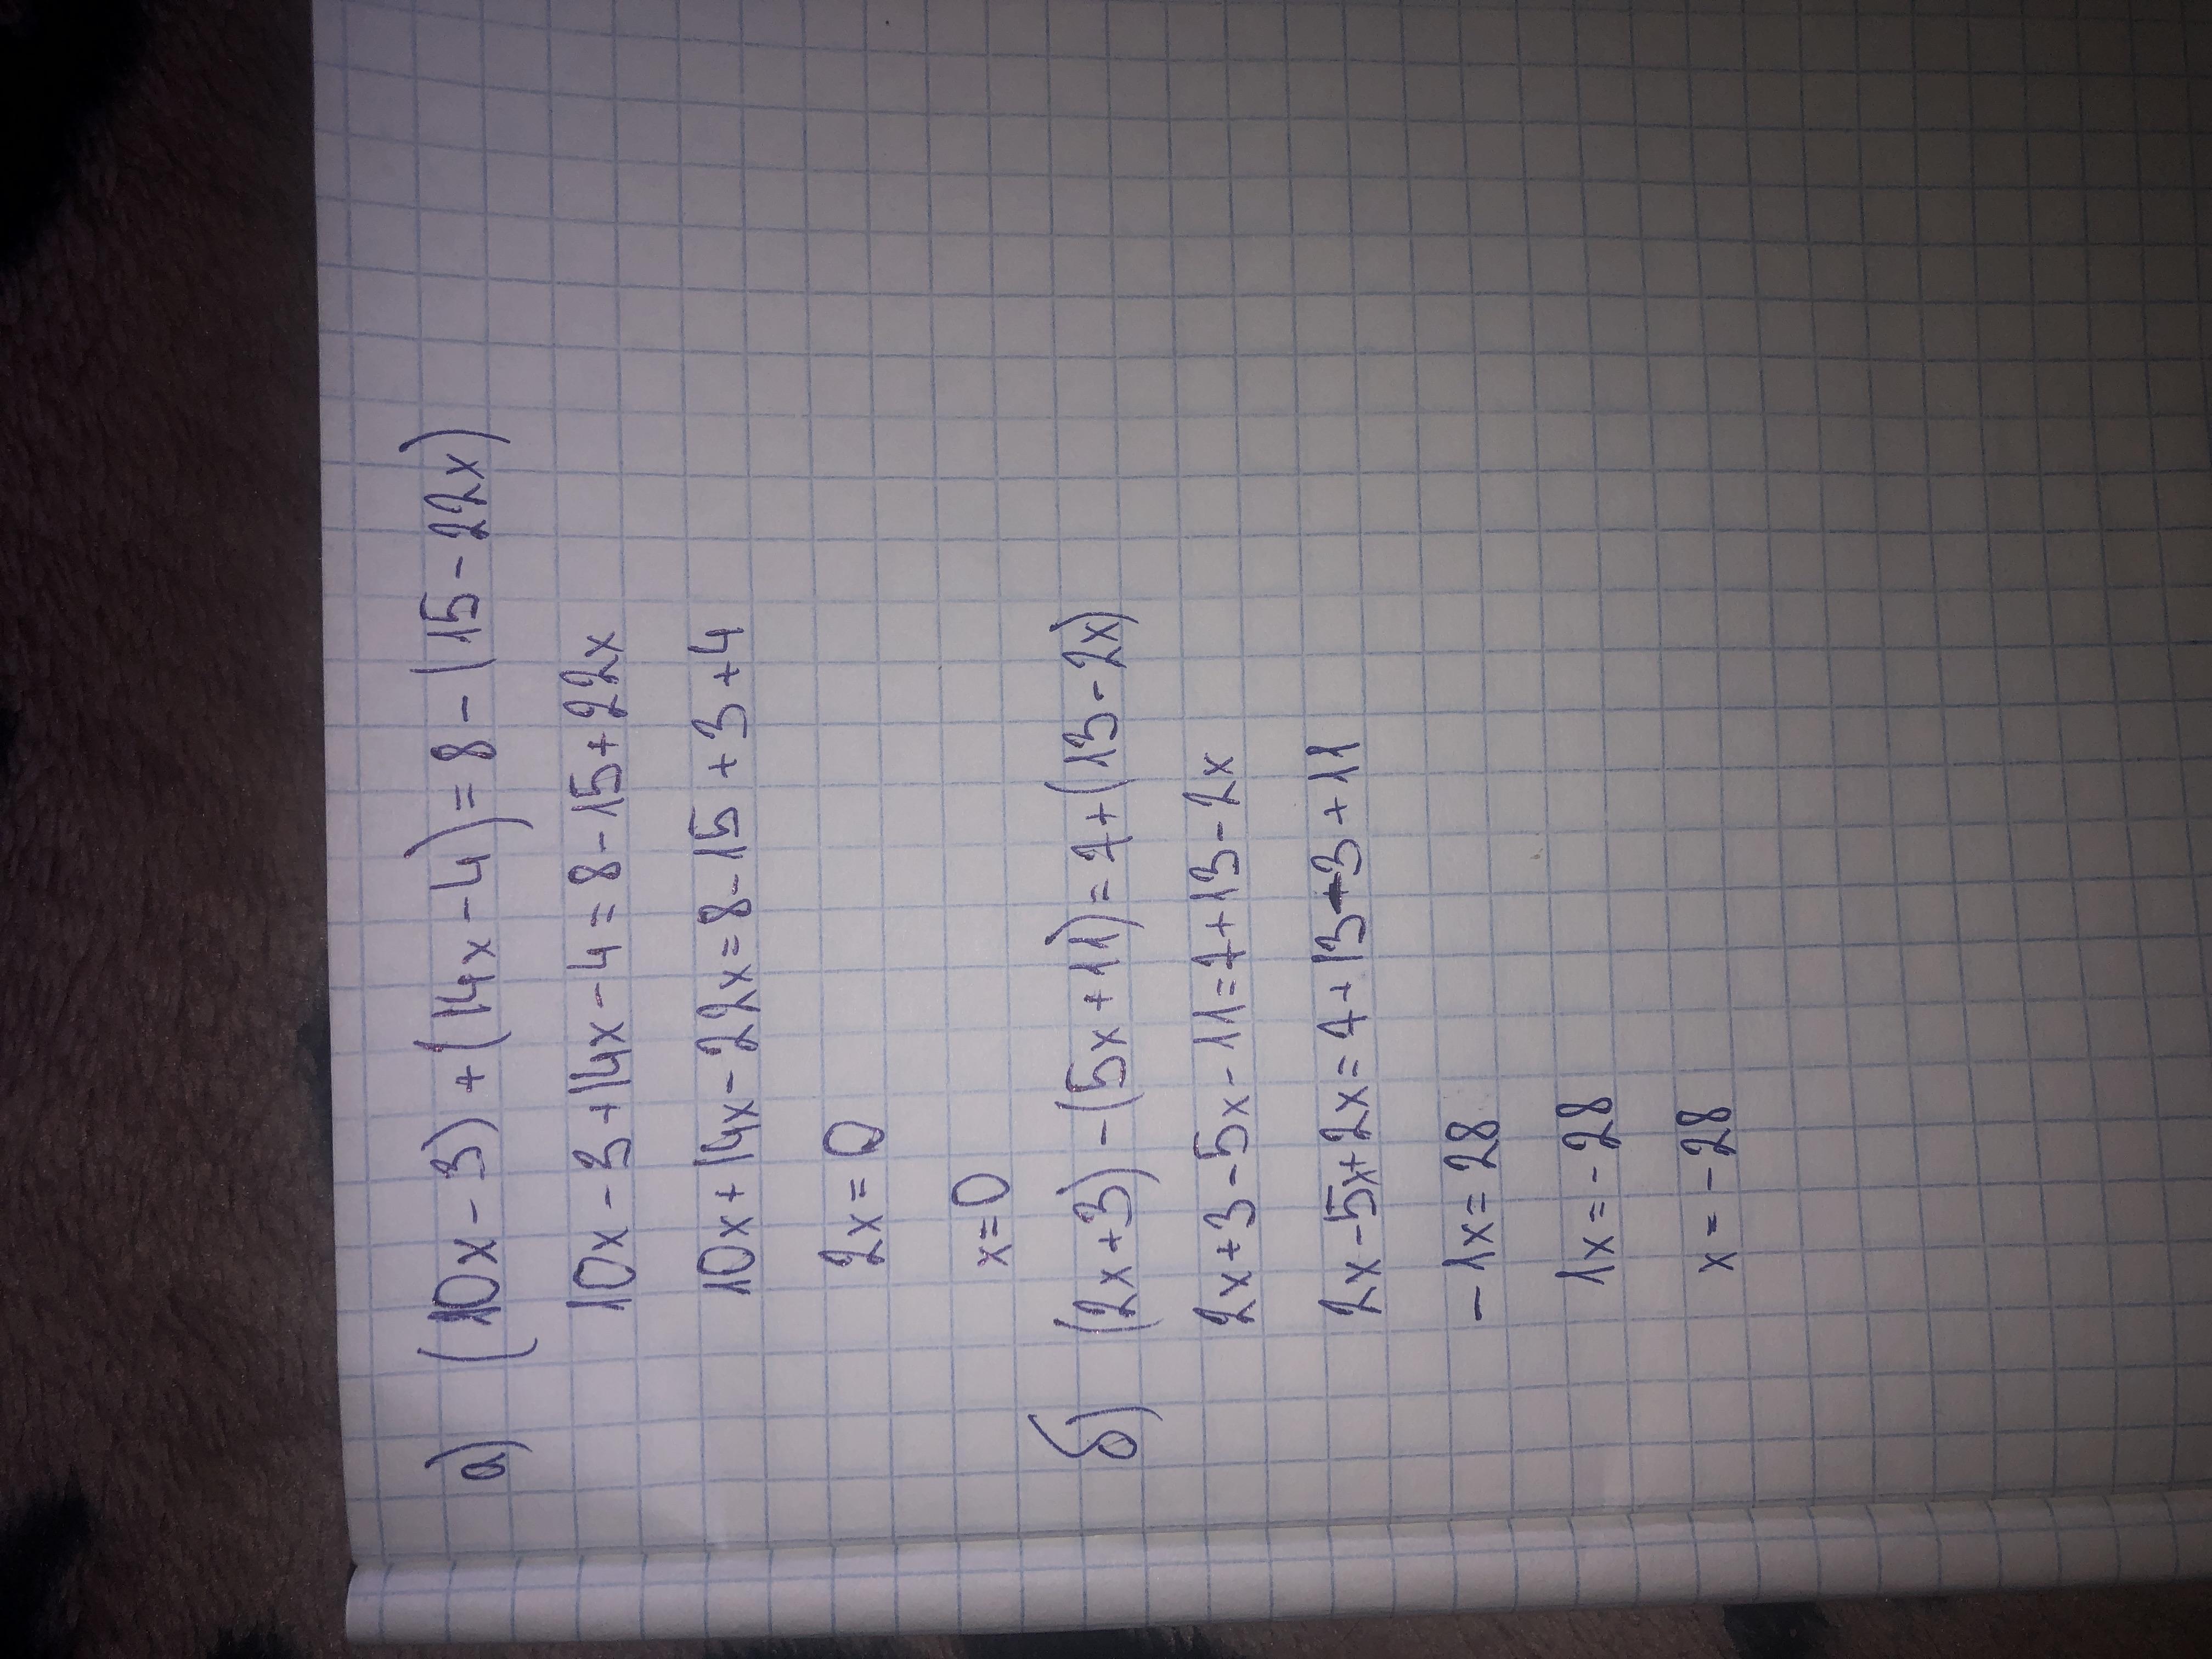 а) (10x-3)+(14x-4)=8-(15-22x)
10x-3+14x-4=8-15+22x
10x+14x-22x=8-15+3+4
2x=0
x=0
б) (2x+3)-(5x+11)=7+(13-2x)
2x+3-5x-11=7+13-2x
2x-5x+2x=7+13-3+11
-1x=28
1x=-28
x=-28